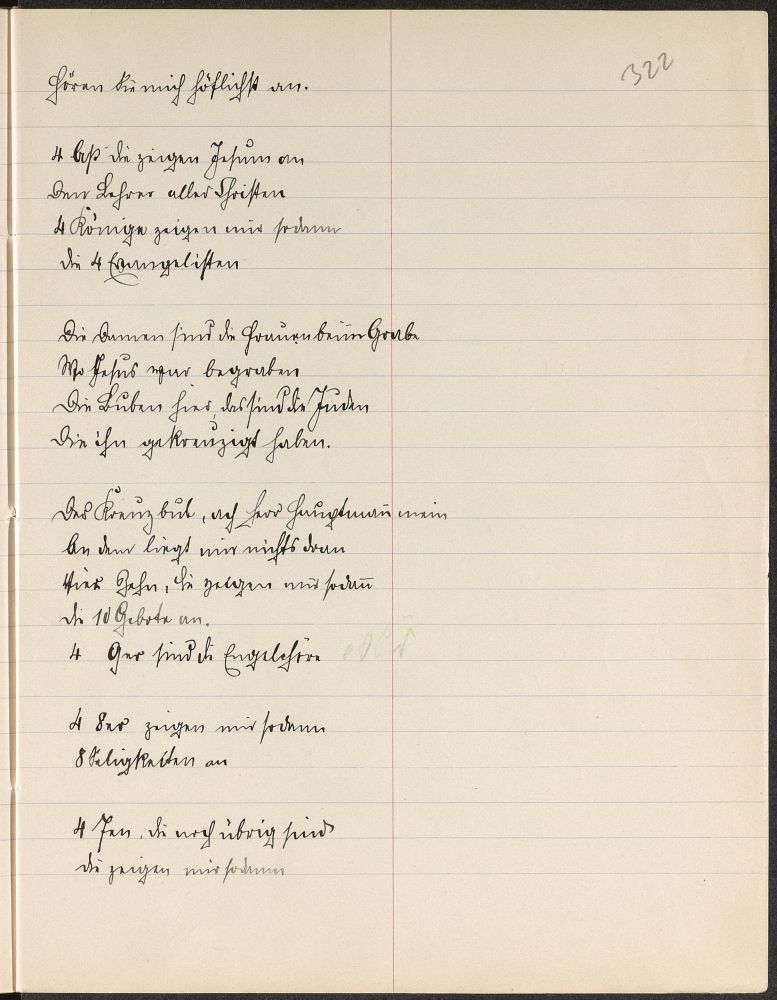 322
Hören Sie mich höflichst an.
4 Aß die zeigen Jesum an
Den Lehrer aller Christen
4 Könige zeigen mir sodann
die 4 Evangelisten
Die Damen sind die Frauen beim Grabe
Wo Jesus war begraben
Die Buben hier, das sind die Juden
Die ihn gekreuzigt haben.
Der Kreuzbub, ach Herr Hauptmañ mein
An dem liegt mir nichts dran
Vier Zehn, die zeigen mir sodañ
die 10 Gebote an.
4 9er sind die Engelchöre
4 8er zeigen mir sodann
8 Seligkeiten an
4 7en, die noch übrig sind
die zeigen mir sodann